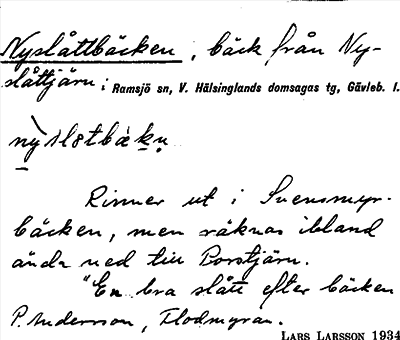 Nyslåttbäcken, bäck från Ny-
slåttjärn; Ramsjö sn, V. Hälsinglands domsagas tg, Gävleb. l.
Rinner ut i Svensmyr-
bäcken, men räknas ibland
ända ned till Borstjärn.
"En bra slått efter bäcken
P. Andersson, Flodmyran.
LARS LARSSON 1934